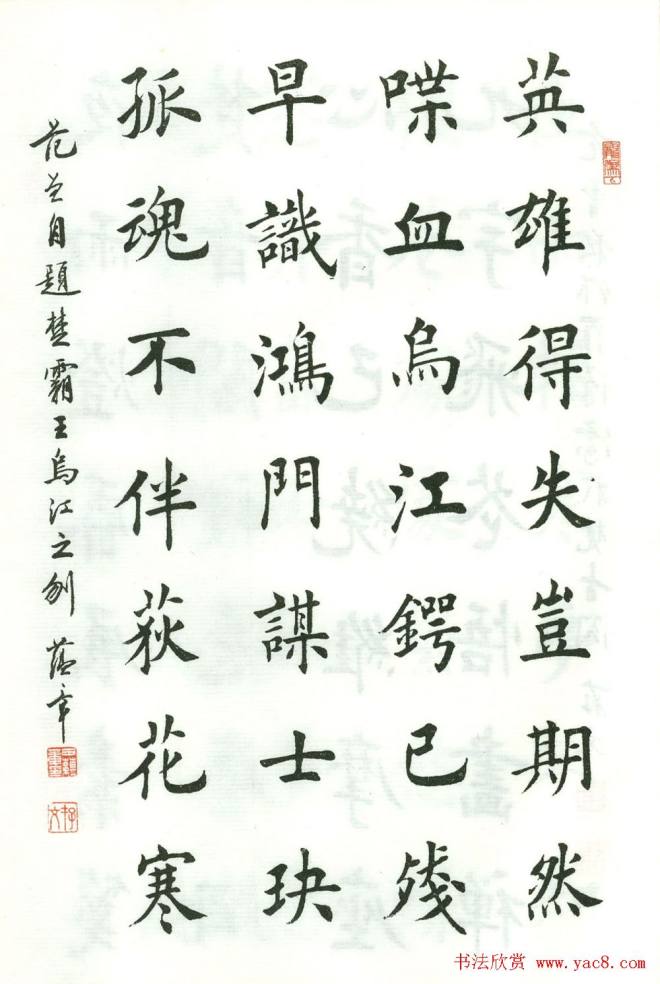 英雄得失豈期然
喋血烏江鍔已殘
早識鴻門謀士玦
孤魂不伴荻花寒
范曾自題楚霸王烏江之刎
书法欣赏 www.yac8.com